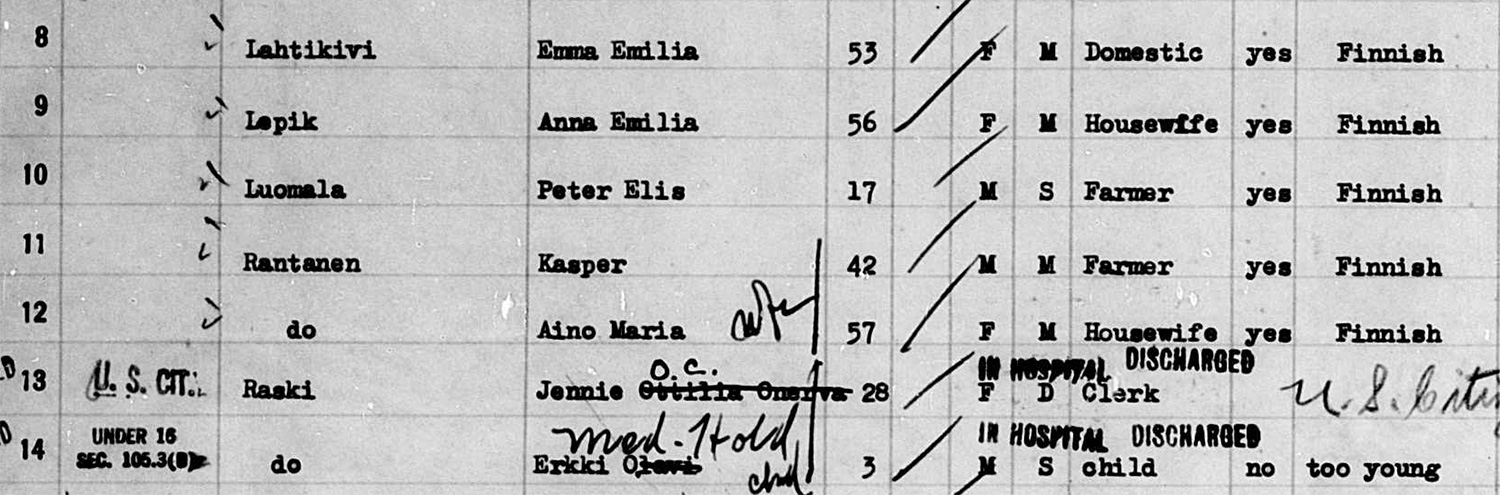 8 Lahtikivi Emma Emilia 53 F M Domestic yes Finnish
9 Lepik Anna Emilia 56 F M Housewffe yes Finnish
10 Luomala Peter Elis 17 M S Farmer yes Finnish
11 Rantanen Kasper 42 M M Farmer yes Finnish
12 do Aino Maria wife 57 F M Housewife yes Finnish
O.C. IN HOSPITAL DISCHARGED
13 U. S. CIT. Raski Jennie Ottilia Onerva 28 F D Clerk U.S. Citiz
UNDER 16 Med. Hold IN HOSPITAL DISCHARGED
14 SEC. 105.3(B) do Erkki Olavi 3 M S child no too young